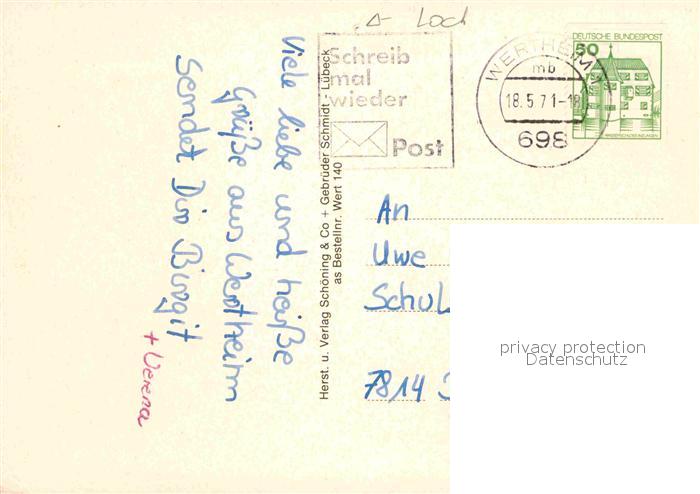 Loch
DEUTSCHE BUNDESPOST
50
WERTHEIM
mb
18.5.71-18
698
Schreib
mal
wieder
Post
Viele liebe und heiße
Grüße aus Wertheim
sendet Dir Birgit
+ Verena
Herst. u. Verlag Schöning & Co + Gebrüder Schmidt, Lübeck
as Bestellnr. Wert 140
An
Uwe
Schul
7814
privacy protection
Datenschutz